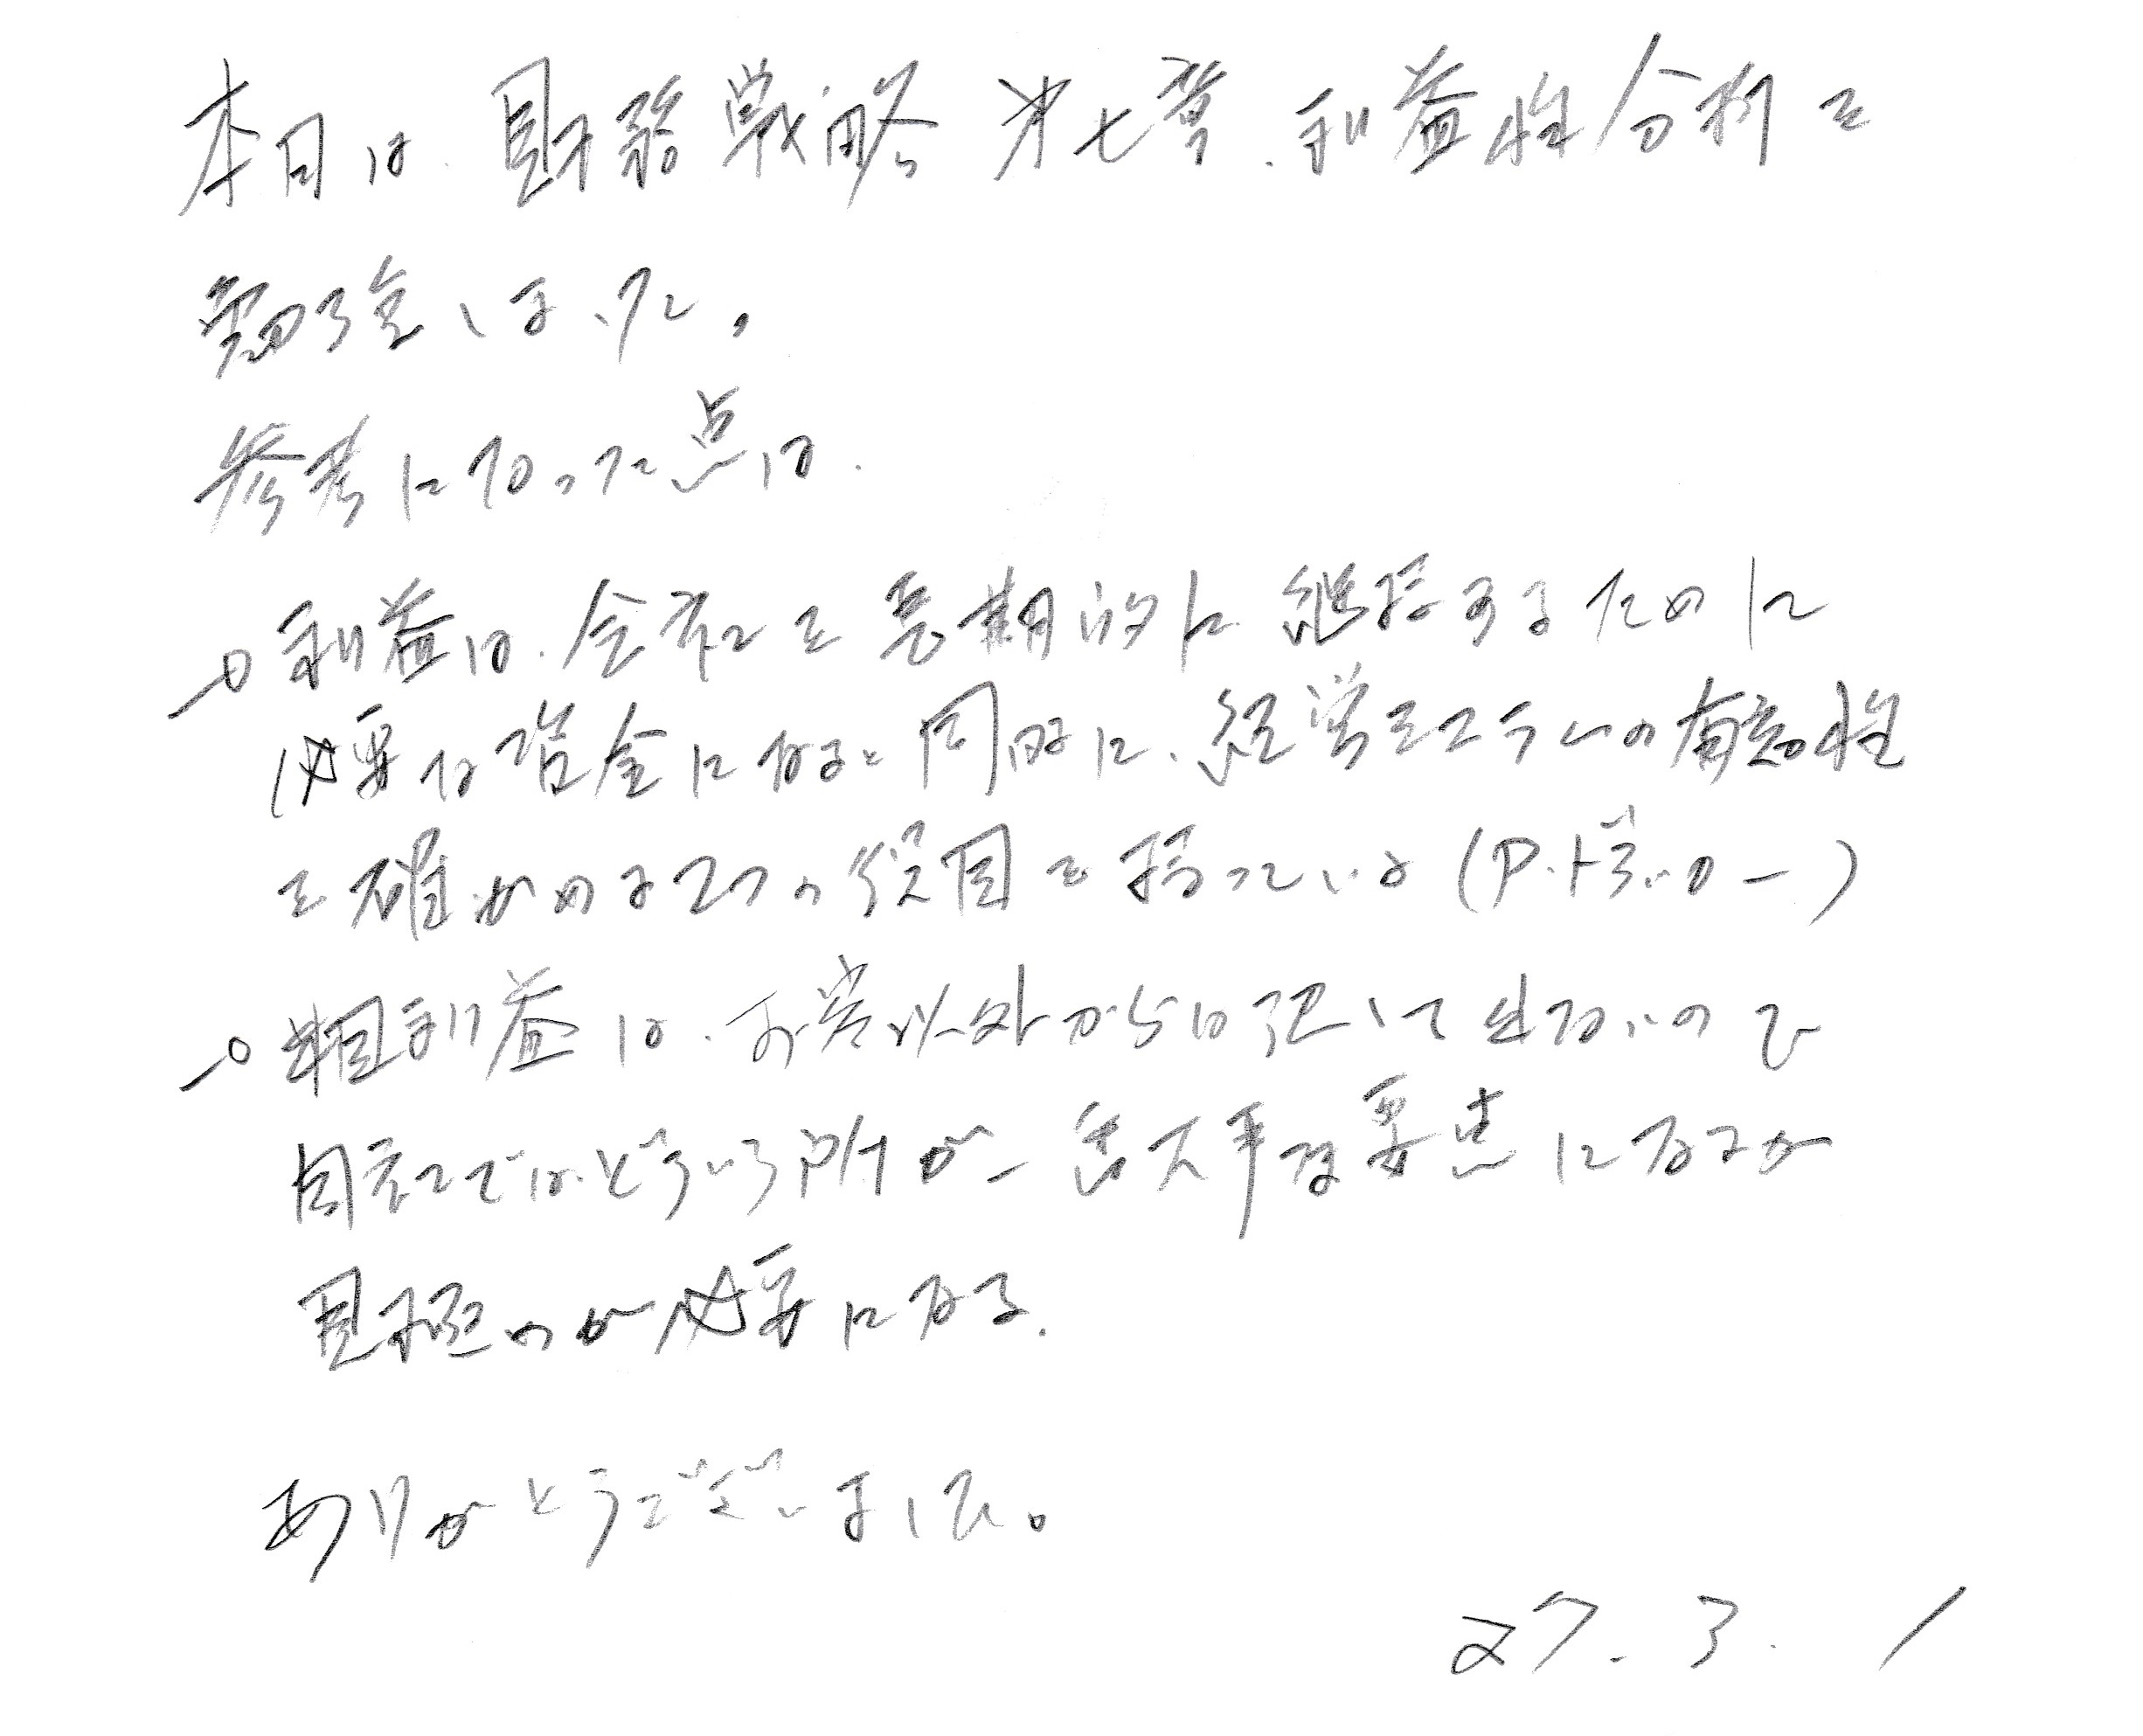 本日は、財務戦略 第七章、利益性分析を
勉強しました。
参考になった点は、
○利益は、会社を長期的に継続するために
必要な 金になると同時に、経営モデルの有効性
を確かめる2つの役目を持っている(P.ドラッカー)
○粗利益は、お客以外からは決して出ないので
自社ではどういう所が一番大事な要点になるか
見極めが必要になる.
ありがとうございました。
27.3.1